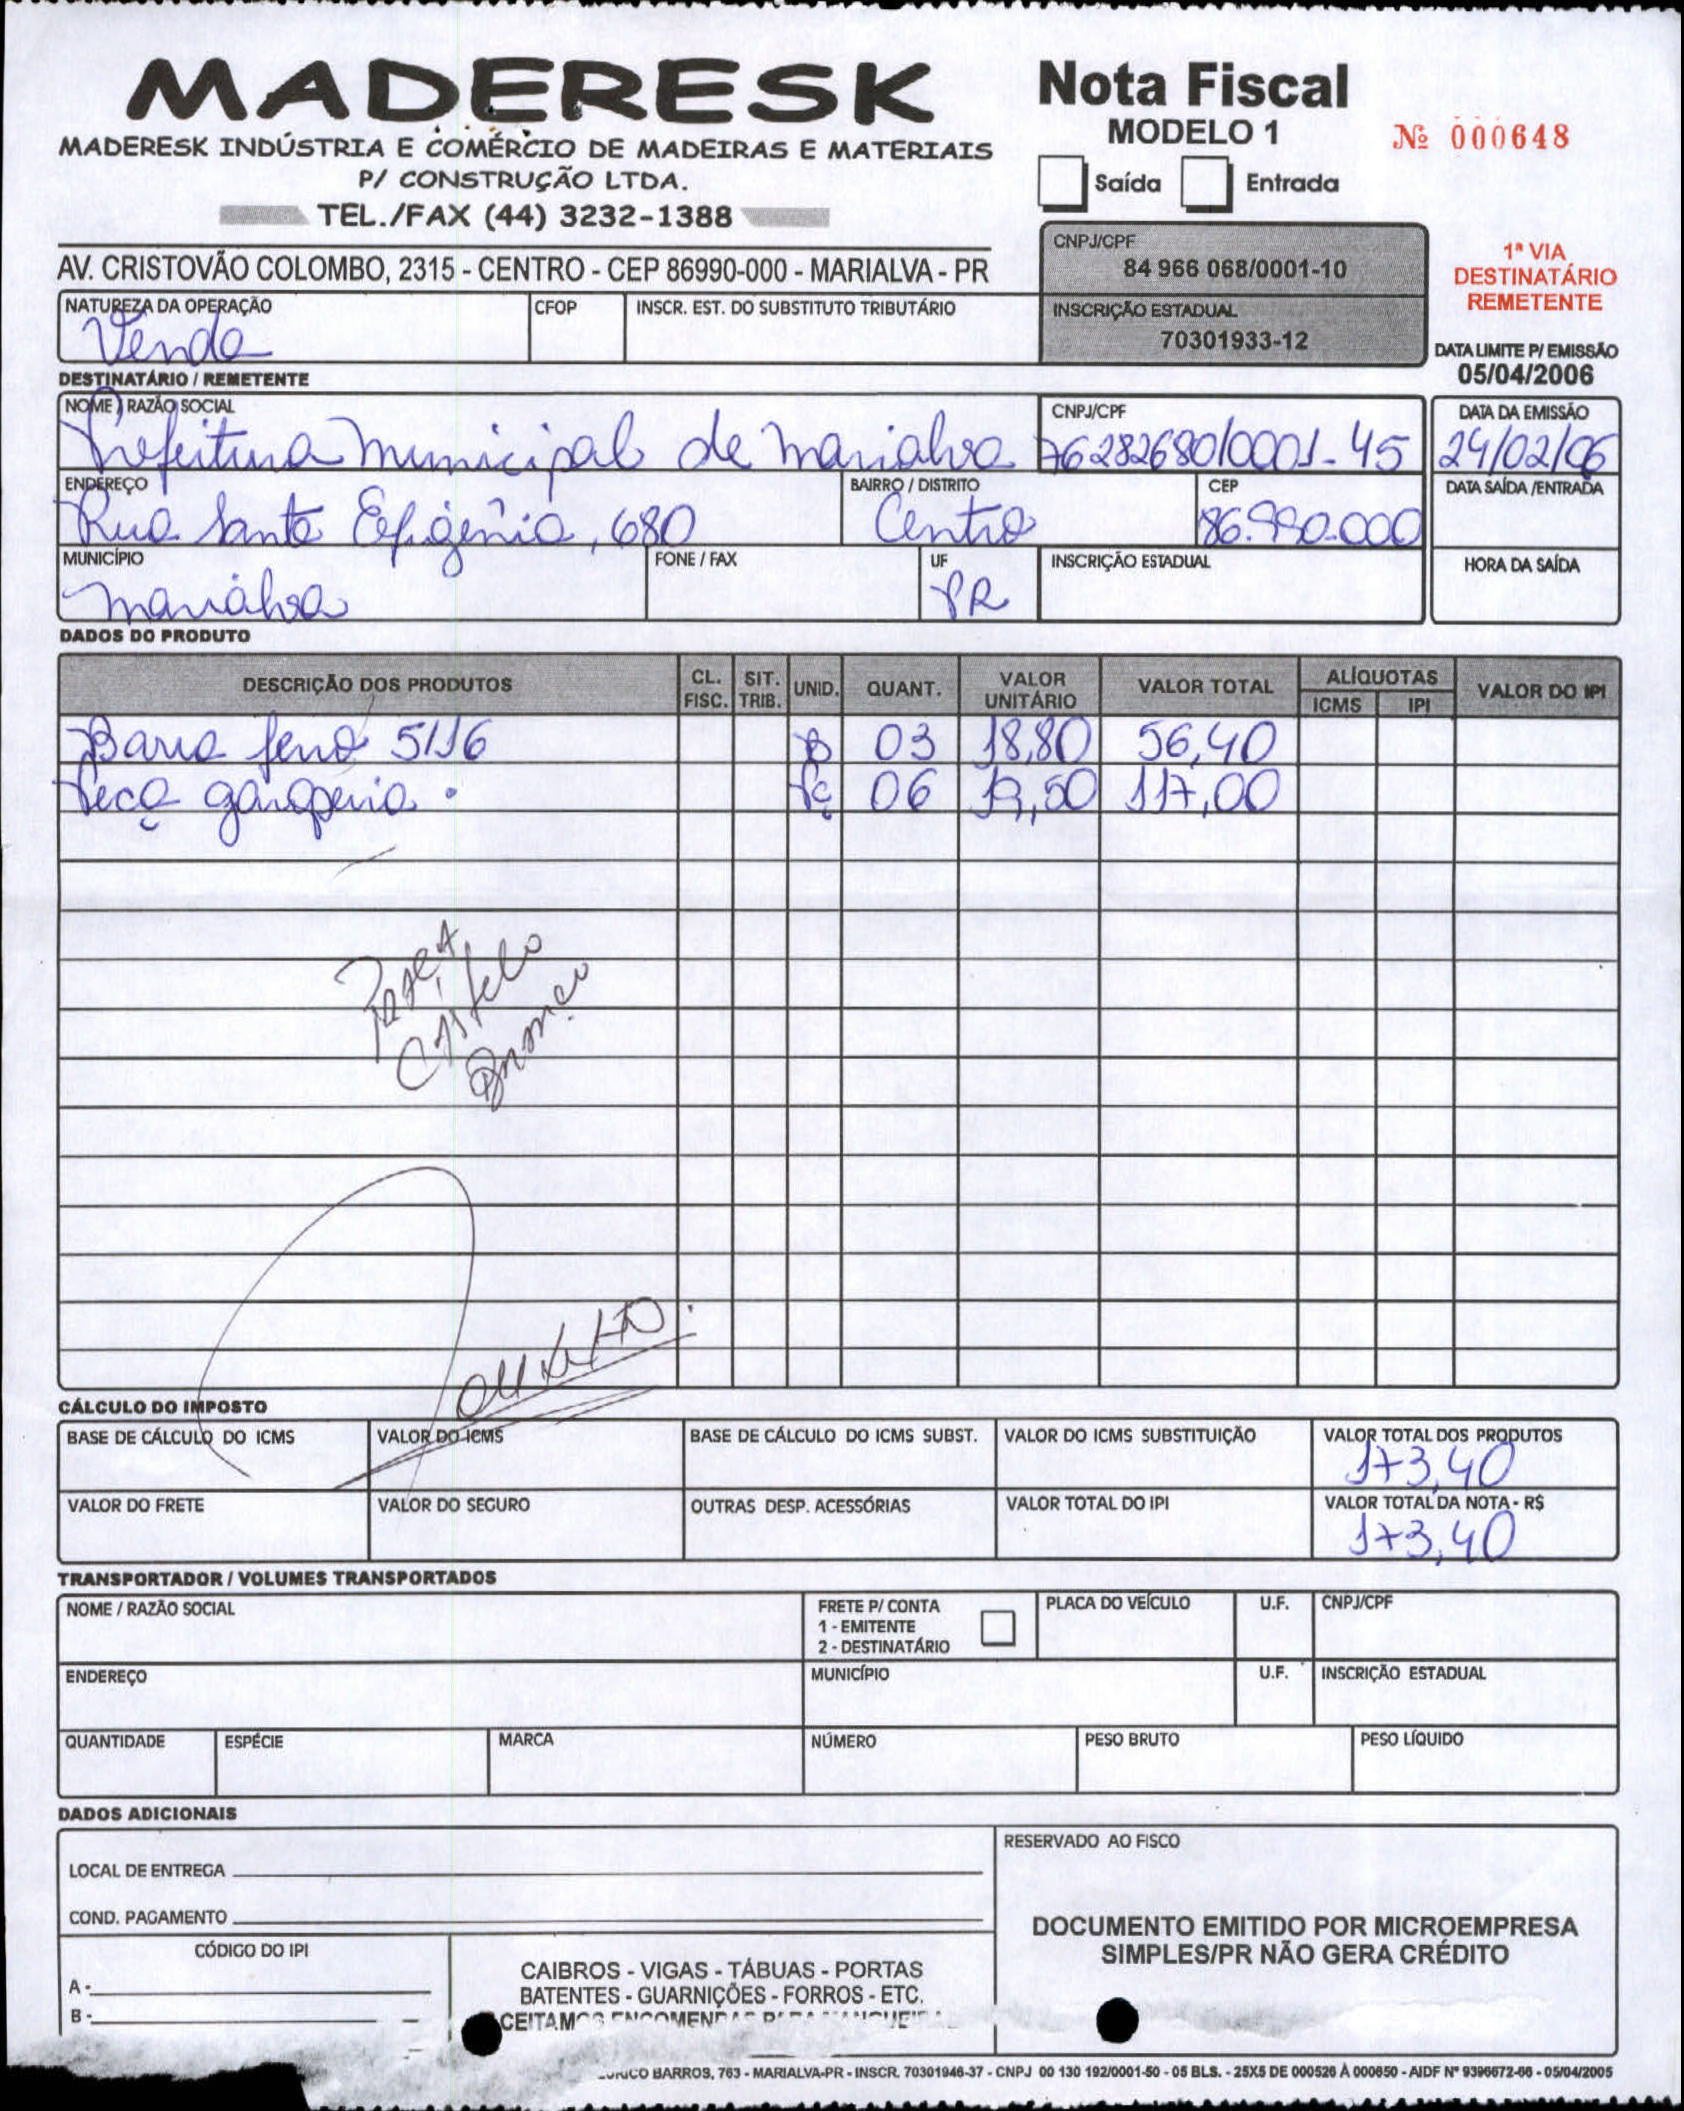 MADERESK
MADERESK INDÚSTRIA E COMÉRCIO DE MADEIRAS E MATERIAIS
P/ CONSTRUÇÃO LTDA.
TEL./FAX (44) 3232-1388
AV. CRISTOVÃO COLOMBO, 2315 - CENTRO - CEP 86990-000 - MARIALVA - PR
Nota Fiscal
MODELO 1
Nº 000648
Saída Entrada
CNPJ/CPF
84 966 068/0001-10
INSCRIÇÃO ESTADUAL
70301933-12
1ª VIA
DESTINATÁRIO
REMETENTE
DATA LIMITE P/ EMISSÃO
05/04/2006
NATUREZA DA OPERAÇÃO CFOP INSCR. EST. DO SUBSTITUTO TRIBUTÁRIO
Venda
DESTINATÁRIO / REMETENTE
NOME / RAZÃO SOCIAL CNPJ/CPF DATA DA EMISSÃO
Prefeitura Municipal de Marialva 76282680/0001-45 24/02/06
ENDEREÇO BAIRRO / DISTRITO CEP DATA SAÍDA /ENTRADA
Rua Santa Efigênia, 680 Centro 86.990-000
MUNICÍPIO FONE / FAX UF INSCRIÇÃO ESTADUAL HORA DA SAÍDA
Marialva PR
DADOS DO PRODUTO
DESCRIÇÃO DOS PRODUTOS CL. FISC. SIT. TRIB. UNID. QUANT. VALOR UNITÁRIO VALOR TOTAL ALÍQUOTAS ICMS IPI VALOR DO IPI
Barra ferro 5/16 B 03 18,80 56,40
Peça garaperia Pç 06 19,50 117,00
PARA
Castelo
Branco
CÁLCULO DO IMPOSTO
BASE DE CÁLCULO DO ICMS VALOR DO ICMS BASE DE CÁLCULO DO ICMS SUBST. VALOR DO ICMS SUBSTITUIÇÃO VALOR TOTAL DOS PRODUTOS
173,40
VALOR DO FRETE VALOR DO SEGURO OUTRAS DESP. ACESSÓRIAS VALOR TOTAL DO IPI VALOR TOTAL DA NOTA - R$
173,40
TRANSPORTADOR / VOLUMES TRANSPORTADOS
NOME / RAZÃO SOCIAL FRETE P/ CONTA PLACA DO VEÍCULO U.F. CNPJ/CPF
1 - EMITENTE
2 - DESTINATÁRIO
ENDEREÇO MUNICÍPIO U.F. INSCRIÇÃO ESTADUAL
QUANTIDADE ESPÉCIE MARCA NÚMERO PESO BRUTO PESO LÍQUIDO
DADOS ADICIONAIS
LOCAL DE ENTREGA
COND. PAGAMENTO
CÓDIGO DO IPI
A -
B -
CAIBROS - VIGAS - TÁBUAS - PORTAS
BATENTES - GUARNIÇÕES - FORROS - ETC.
RESERVADO AO FISCO
DOCUMENTO EMITIDO POR MICROEMPRESA
SIMPLES/PR NÃO GERA CRÉDITO
BARROS, 763 - MARIALVA-PR - INSCR. 70301946-37 - CNPJ 00 130 192/0001-50 - 05 BLS. - 25X5 DE 000526 À 000650 - AIDF Nº 9396672-66 - 05/04/2005